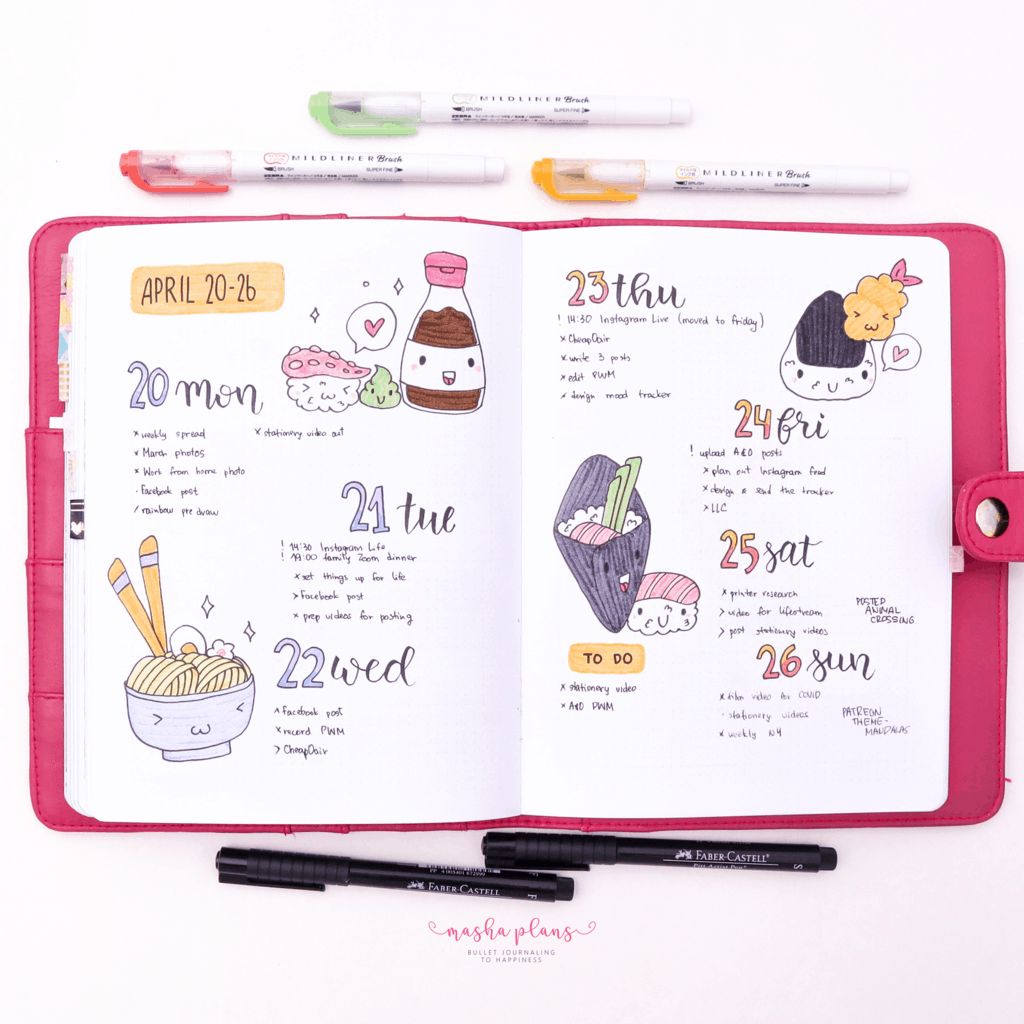 MILDLINER Brush
BRUSH SUPER FINE
MILDLINER Brush
BRUSH SUPER FINE
MILDLINER Brush
BRUSH SUPER FINE
APRIL 20-26
20 mon
x weekly spread
x March photos
x Work from home photo
· Facebook post
/ rainbow pre draw
x stationery video out
21 tue
! 14:30 Instagram Life
! 19:00 family Zoom dinner
x set things up for life
> Facebook post
x prep videos for posting
22 wed
x Facebook post
x record PWM
> CheapOair
23 thu
! 14:30 Instagram Live (moved to friday)
x CheapOair
x write 3 posts
x edit PWM
x design mood tracker
24 fri
! upload A&O posts
x plan out Instagram feed
x design & send the tracker
x LLC
25 sat
x printer research
> video for lifestream
> post stationery videos
POSTED
ANIMAL
CROSSING
TO DO
x stationery video
x A&O PWM
26 sun
x film video for COVID
· stationery videos
x weekly NY
PATREON
THEME-
MANDALAS
FABER-CASTELL
PITT Artist Pen
S
FABER-CASTELL
F
masha plans
BULLET JOURNALING
TO HAPPINESS